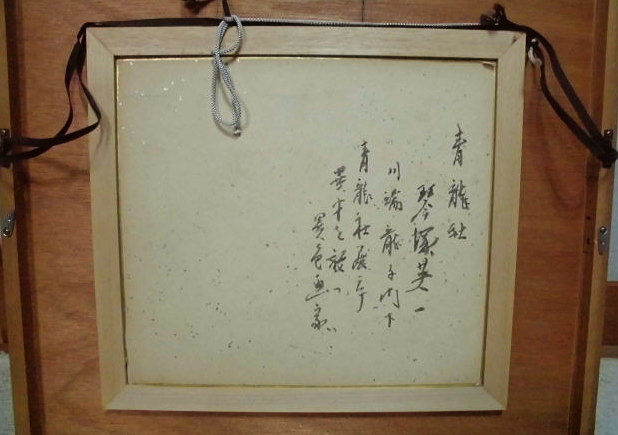 青龍社
琴塚英一
川端龍子門下
青龍社展
異色画家